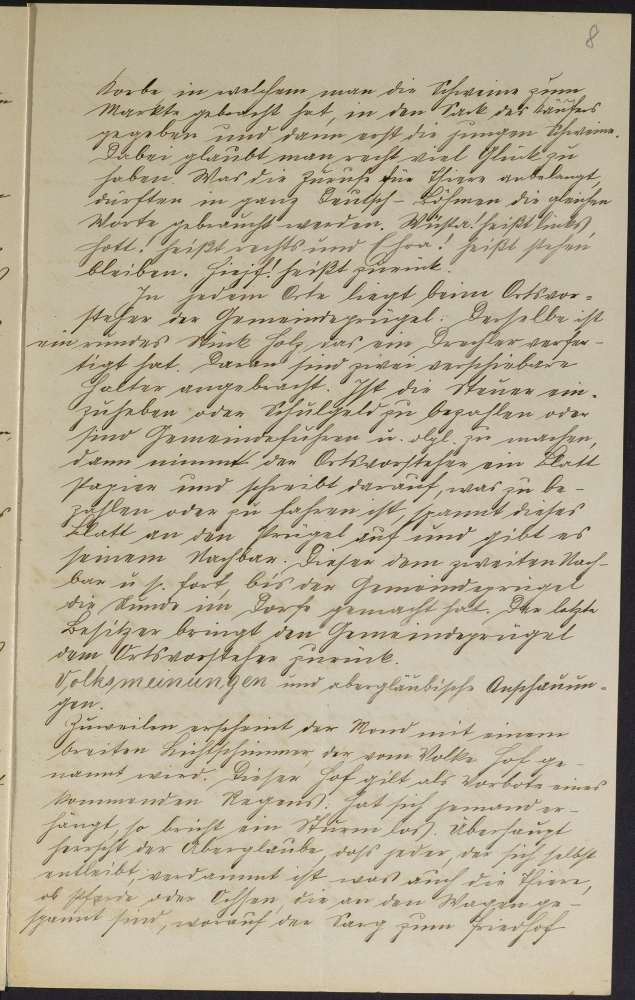 8
Korbe in welchem man die Schweine zum
Markte gebracht hat, in den Sack des Käufers
gegeben und dann erst die jungen Schweine.
Dabei glaubt man recht viel Glück zu
haben. Was die Zurufe für Thiere anbelangt,
dürften in ganz Deutsch-Böhmen die gleichen
Worte gebraucht werden. Wüsta! heißt links,
hott! heißt rechts und Ehra! heißt stehen
bleiben. heißt zurück.
In jedem Orte liegt beim Ortsvor=
steher der Gemeindeprügel. Derselbe ist
ein rundes Stück Holz, das ein Drechsler verfer-
tigt hat. Daran sind zwei verschiebare
Halter angebracht. Ist die Steuer ein-
zuheben oder Schulgeld zu bezahlen oder
sind Gemeindefuhren u. dgl. zu machen,
dann nimmt der Ortsvorsteher ein Blatt
Papier und schreibt darauf, was zu be-
zahlen oder zu fahren ist, spannt dieses
Blatt an den Prügel auf und gibt es
seinem Nachbar. Dieser dem zweiten Nach-
bar u. s. fort, bis der Gemeindeprügel
die Runde im Dorfe gemacht hat. Der letzte
Besitzer bringt den Gemeindeprügel
dem Ortsvorsteher zurück.
Volksmeinungen und abergläubische Anschauun-
gen.
Zuweilen erscheint der Mond mit einem
breiten Lichtschimmer der vom Volke Hof ge-
nannt wird. Dieser Hof gilt als Vorbote eines
kommenden Regens. Hat sich jemand er-
hängt, so bricht ein Sturm los. Überhaupt
herrscht der Aberglaube, dass jeder, der sich selbst
entleibt, verdammt ist was auch die Thiere,
ob Pferde oder Ochsen, die an den Wagen ge-
spannt sind, worauf der Sarg zum Friedhof